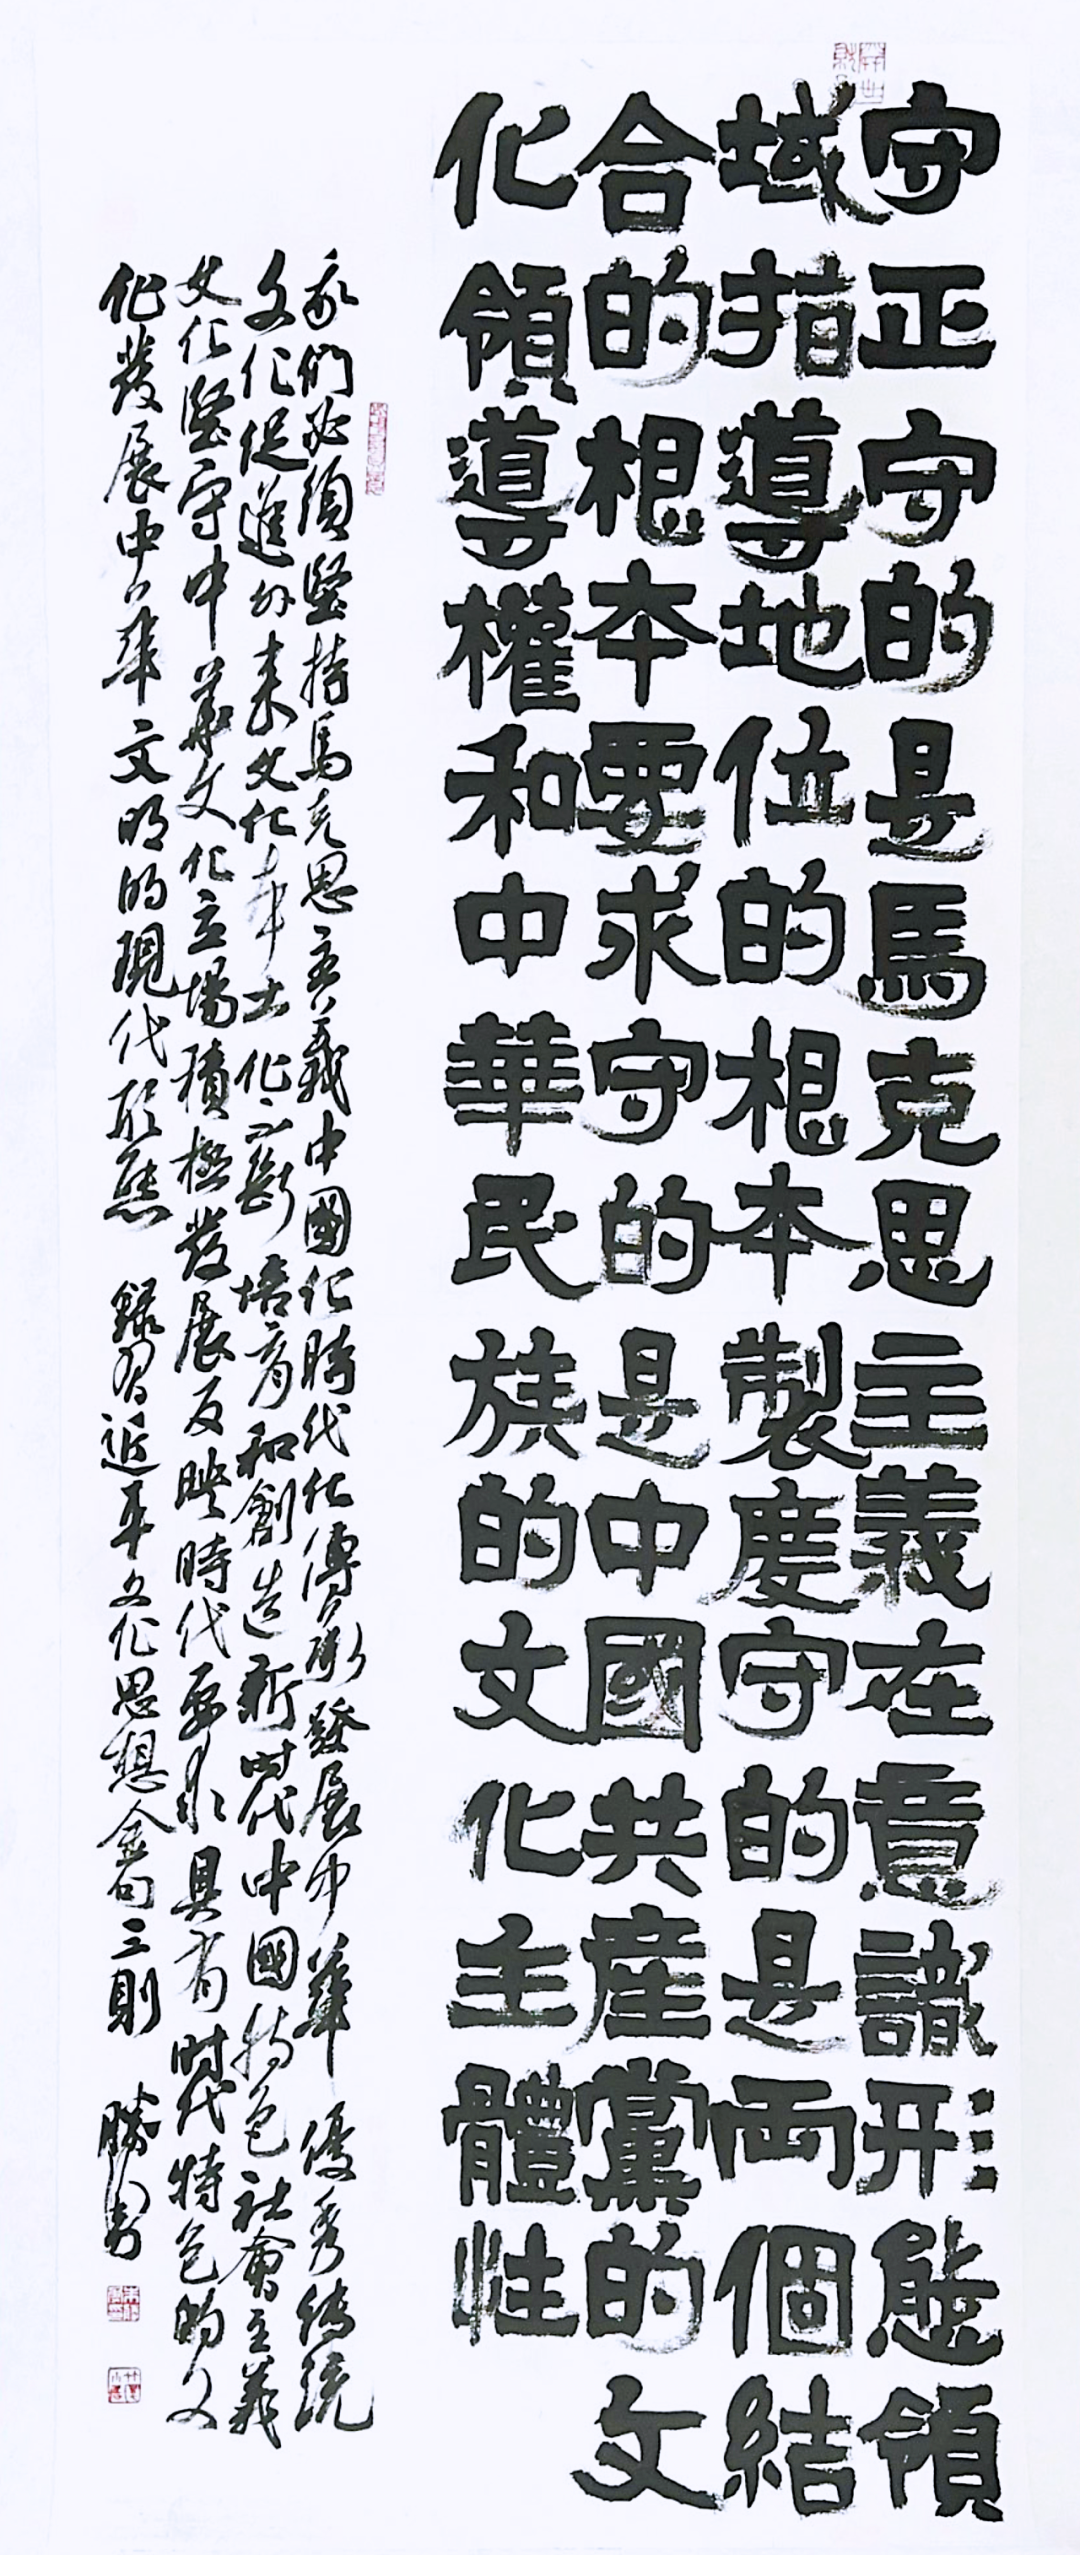 守正守的是馬克思主義在意識形態領
域指導地位的根本製度守的是両個結
合的根本要求守的是中國共産黨的文
化領導權和中華民族的文化主體性
我們必須堅持馬克思主義中國化時代化傳承發展中華優秀传統
文化促進外来文化本土化不斷培育和創造新时代中國特色社會主義
文化堅守中華文化立場積極發展反映時代要求具有时代特色的文
化發展中华文明的現代形態 録習近平文化思想金句三則 勝